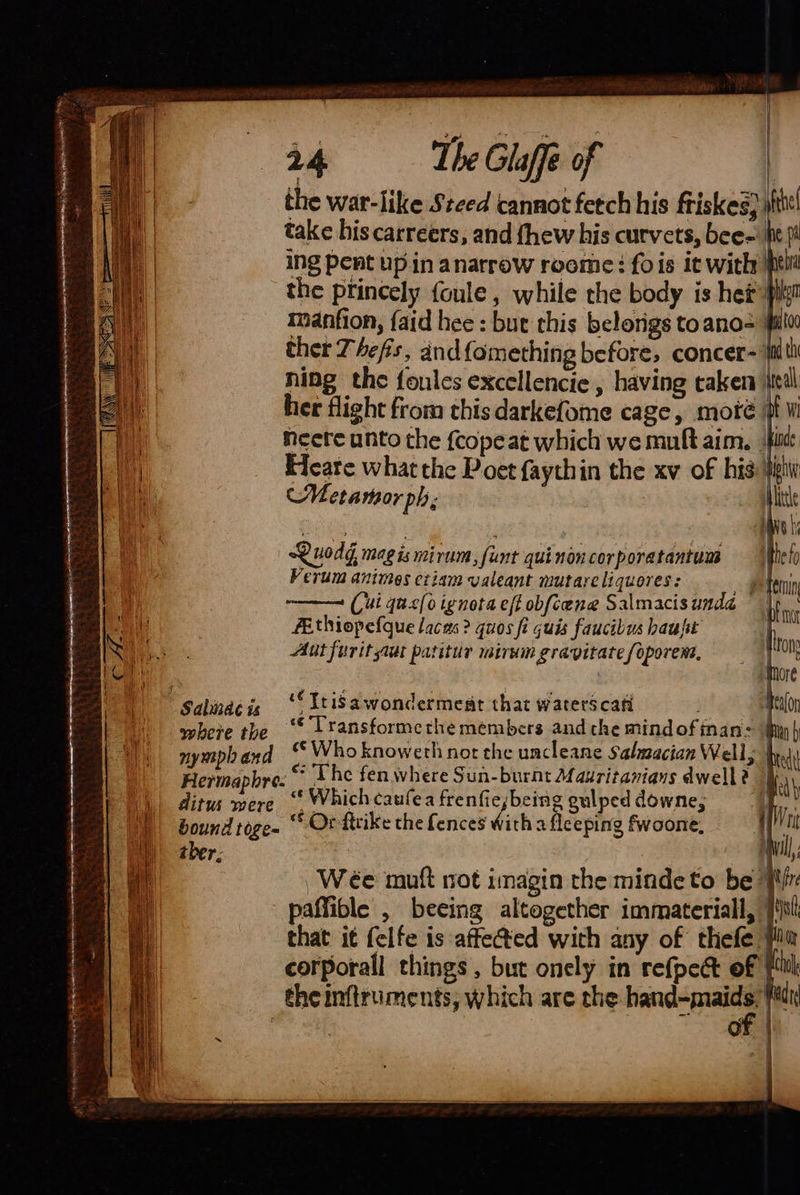 24 The Glaſſe of
the war-like Steed cannot fetch his friskes,
take his carreers, and ſhew his curvets, bee-
ing pent up in a narrow roome: ſo is it with
the princely ſoule, while the body is her
manſion, ſaid hee: but this belongs to ano-
ther Theſis, and ſomething before, concer-
ning the ſoules excellencie, having taken
her flight from this darkeſome cage, more
neere unto the ſcope at which we muſt aim.
Heare what the Poet ſayth in the xv of his
Metamorph;
Quodq, magis mirum, ſunt qui non corpora tantum
Verum animos etiam valeant mutare liquores:
—— Cui quæſo ignota eſt obſcœnæ Salmacis unda
Æthiopeſque lacus? quos ſi quis faucibus hauſit
Aut furit, aut patitur mirum gravitate ſoporem.
Salmacis
where the
nymph and
Hermaphro-
ditus were
bound toge-
ther.
“ It is a wonderment that waters can
“ Transforme the members and the mind of man:
“ Who knoweth not the uncleane Salmacian Well;
“ The fen where Sun-burnt Mauritanians dwell?
“ Which cauſe a frenſie, being gulped downe,
“ Or ſtrike the ſences with a ſleeping ſwoone.
Wée muſt not imagin the minde to be
paſſible, beeing altogether immateriall,
that it ſelfe is affected with any of theſe
corporall things, but onely in reſpect of
the inſtruments, which are the hand-maids
of